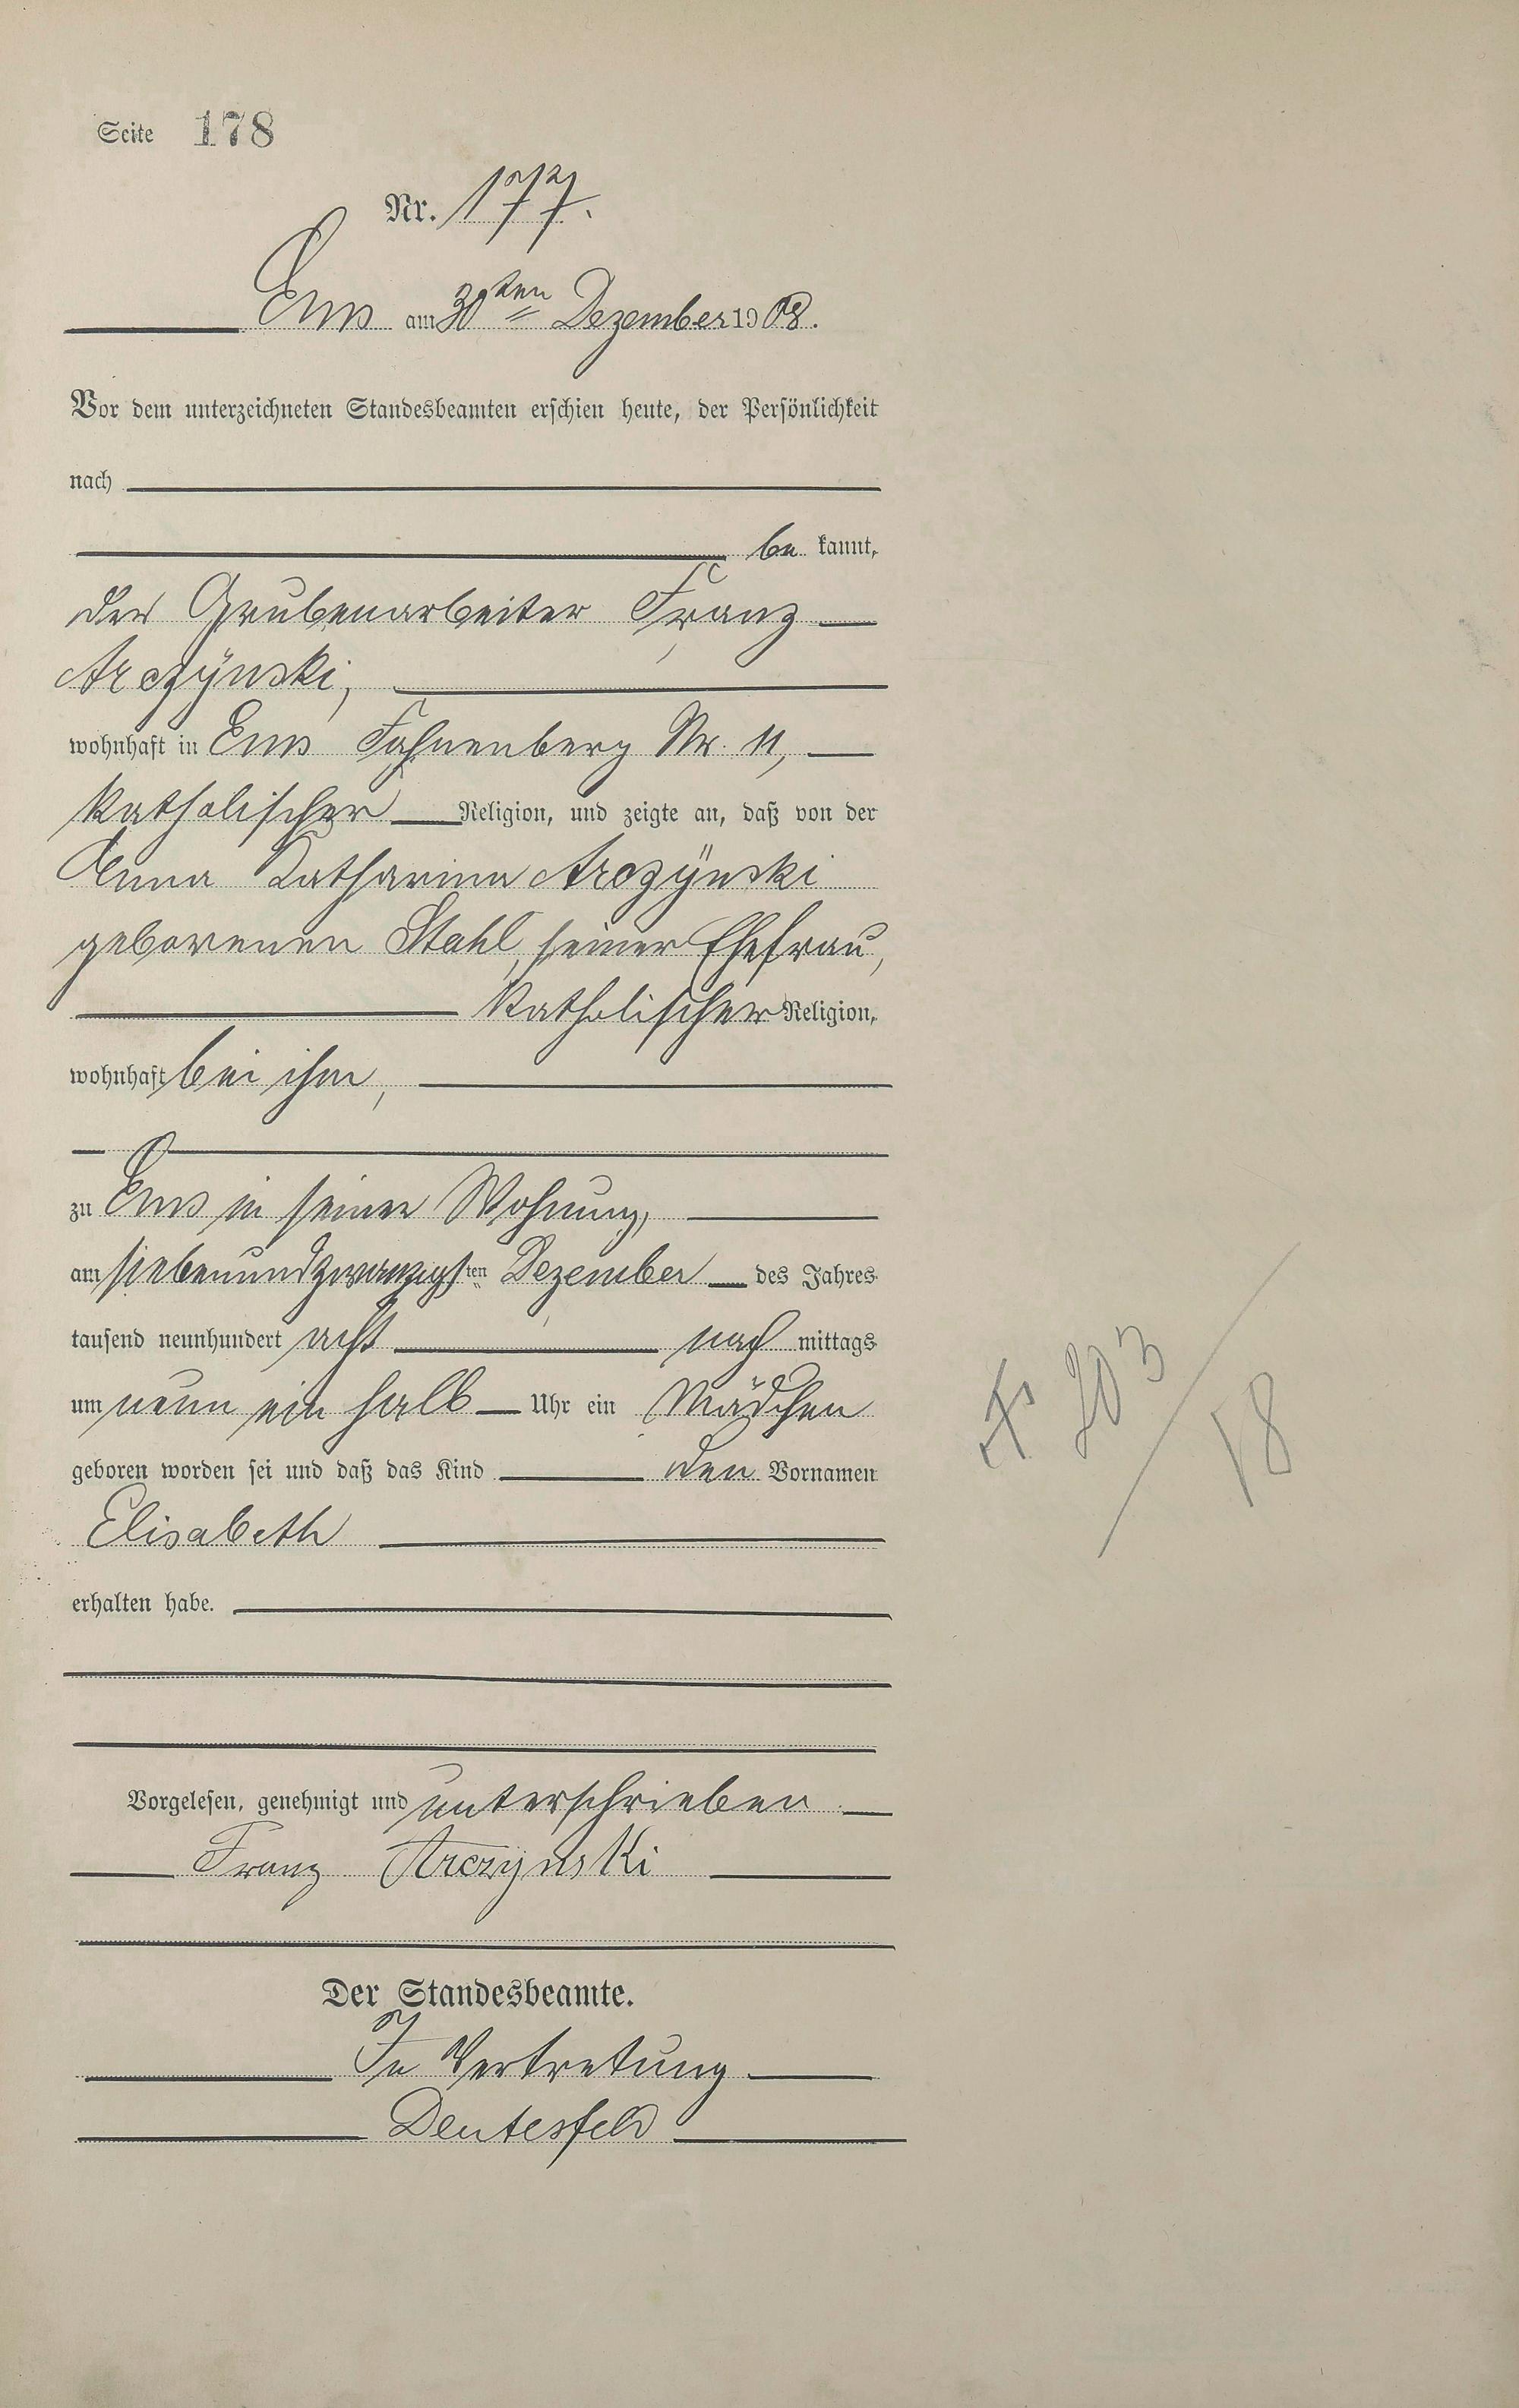 Seite 178
Nr. 177.
Ems am 30ten Dezember 1908.
Vor dem unterzeichneten Standesbeamten erschien heute, der Persönlichkeit
nach
be kannt,
der Grubenarbeiter Franz
Arczÿnski,
wohnhaft in Ems Fahnenberg Nr. 11,
katholischer Religion, und zeigte an, daß von der
Anna Katharina Arczÿnski
geborenen Stahl, seiner Ehefrau,
katholischer Religion,
wohnhaft bei ihm,
zu Ems in seiner Wohnung,
am siebenundzwanzigsten Dezember des Jahres
tausend neunhundert acht nach mittags
um neun ein halb Uhr ein Mädchen
geboren worden sei und daß das Kind den Vornamen
Elisabeth
erhalten habe.
Vorgelesen, genehmigt und unterschrieben
Franz Arczynski
Der Standesbeamte.
In Vertretung
203
18